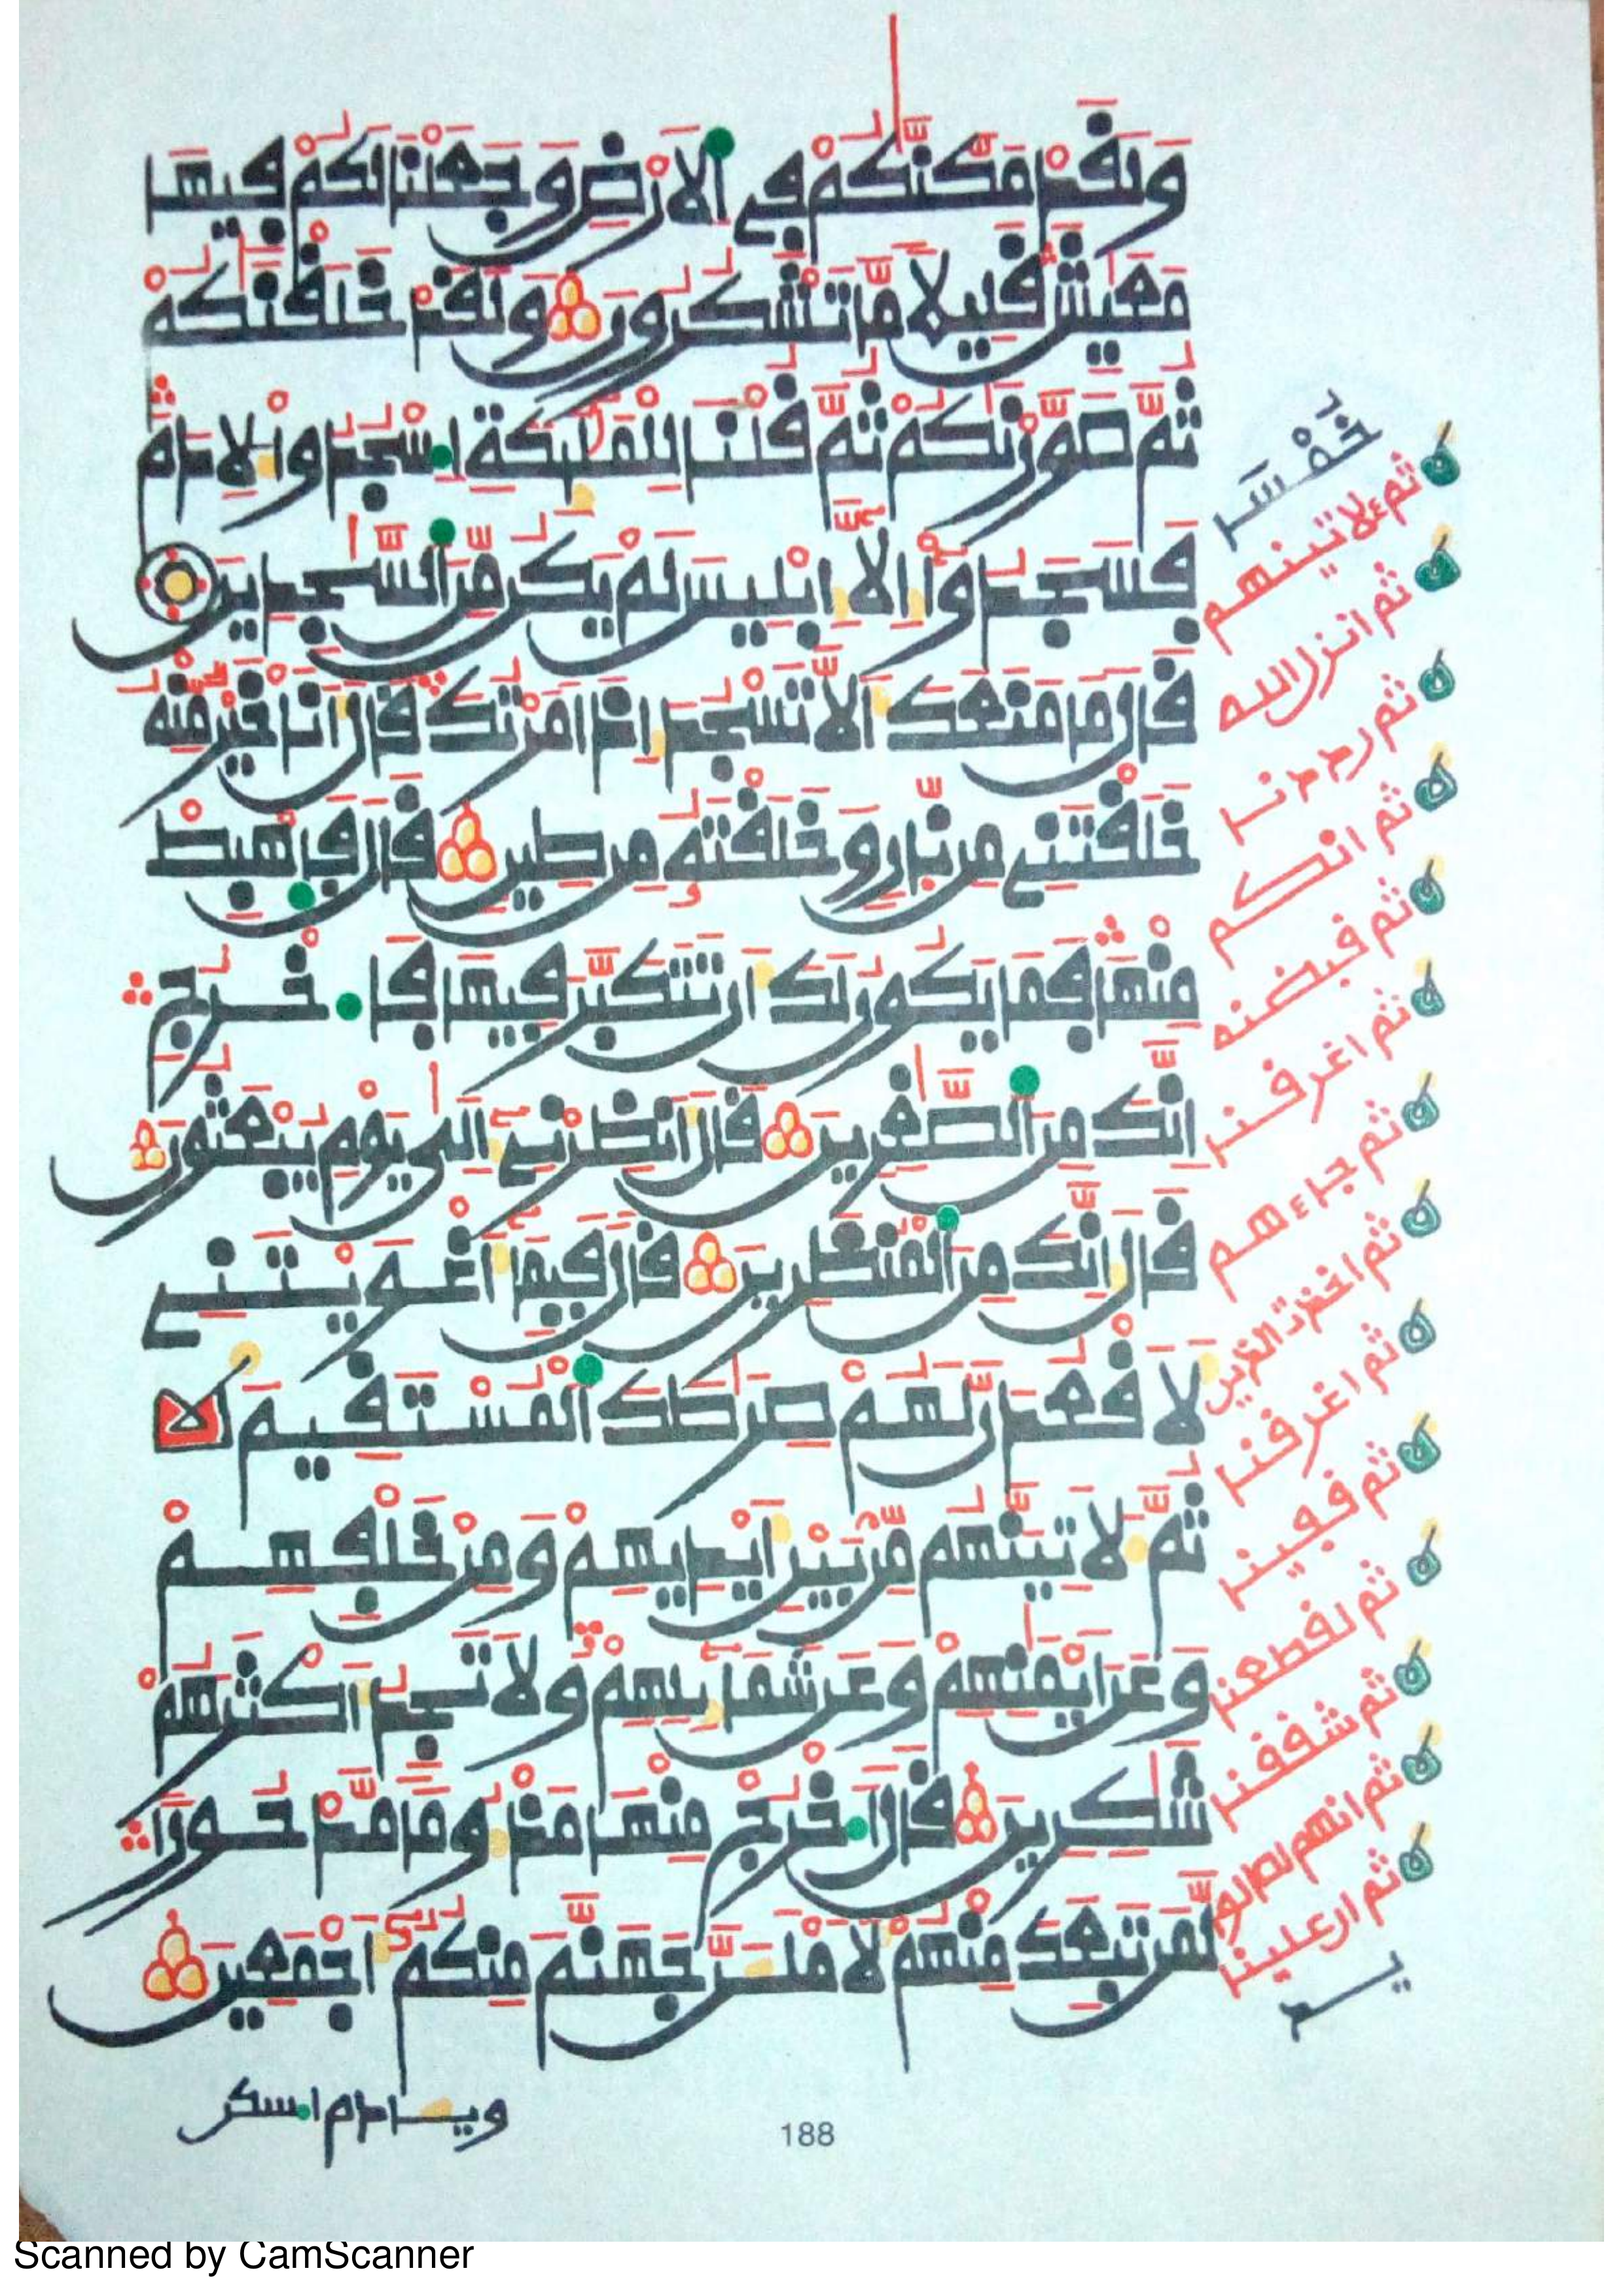 وَلَقَدْ مَكَّنَّكُمْ فِي الَارْضِ وَجَعَلْنَا لَكُمْ فِيهَا
مَعَيِشَ قَلِيلاً مَّا تَشْكُرُونَ وَلَقَدْ خَلَقْنَكُمْ
ثُمَّ صَوَّرْنَكُمْ ثُمَّ قُلْنَا لِلْمَلَئِكَةِ اسْجُدُواْ لِادَمَ
فَسَجَدُواْ إِلاَّ إِبْلِيسَ لَمْ يَكُن مِّنَ السَّجِدِينَ
قَالَ مَا مَنَعَكَ أَلاَّ تَسْجُدَ إِذَ امَرْتُكَ قَالَ أَنَا خَيْرٌ مِّنْهُ
خَلَقْتَنِي مِن نَّارٍ وَخَلَقْتَهُ مِن طِينٍ قَالَ فَاهْبِطْ
مِنْهَا فَمَا يَكُونُ لَكَ أَن تَتَكَبَّرَ فِيهَا فَاخْرُجِ
انَّكَ مِنَ الصَّغِرِينَ قَالَ أَنظِرْنِي إِلَى يَوْمِ يُبْعَثُونَ
قَالَ إِنَّكَ مِنَ الْمُنظَرِينَ قَالَ فَبِمَا أَغْوَيْتَنِي
لَأَقْعُدَنَّ لَهُمْ صِرَطَكَ الْمُسْتَقِيمَ
ثُمَّ لَأَتِيَنَّهُم مِّن بَيْنِ أَيْدِيهِمْ وَمِنْ خَلْفِهِمْ
وَعَنَ ايْمَنِهِمْ وَعَن شَمَائِلِهِمْ وَلاَ تَجِدُ أَكْثَرَهُمْ
شَكِرِينَ قَالَ اخْرُجْ مِنْهَا مَذْءُوماً مَّدْحُوراً
لَّمَن تَبِعَكَ مِنْهُمْ لَأَمْلَأَنَّ جَهَنَّمَ مِنكُمُ أَجْمَعِينَ
ثم لاتينهم
ثم انزل الله
ثم رددنا
ثم انكم
ثم قبضنه
ثم اغرقنا
ثم جاءهم
ثم اخذت الذين
ثم اغرقنا
ثم قفينا
ثم لقطعنا
ثم شققنا
ثم انهم لصالوا
ثم ان علينا
ويادم اسكن
188
Scanned by CamScanner